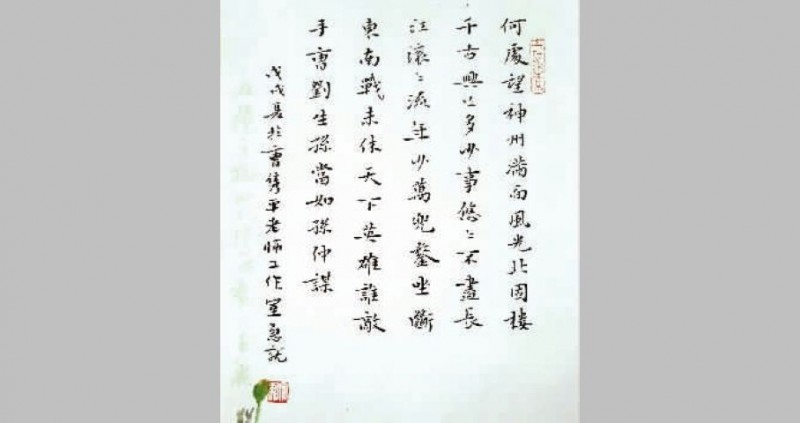 何處望神州滿面風光北固樓
千古興亡多少事悠〻不盡長
江滾〻流年少萬兜鍪坐斷
東南戰未休天下英雄誰敵
手曹劉生孫當如孫仲謀
戊戌夏於曹雋平老師工作室急就